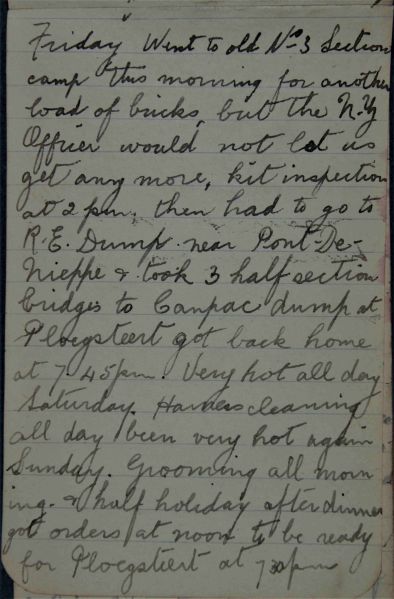 Friday Went to old No 3 Section
camp this morning for another
load of bricks, but the N.Z
Officer would not let us
get any more, kit inspection
at 2 pm. then had to go to
R.E. Dump near Pont-De-
Nieppe & took 3 half section
bridges to Canpac dump at
Ploegsteert got back home
at 7 45 pm. Very hot all day
Saturday. Harness cleaning
all day been very hot again
Sunday. Grooming all morn
ing. & half holiday after dinner
got orders at noon to be ready
for Ploegsteert at 7 30 pm